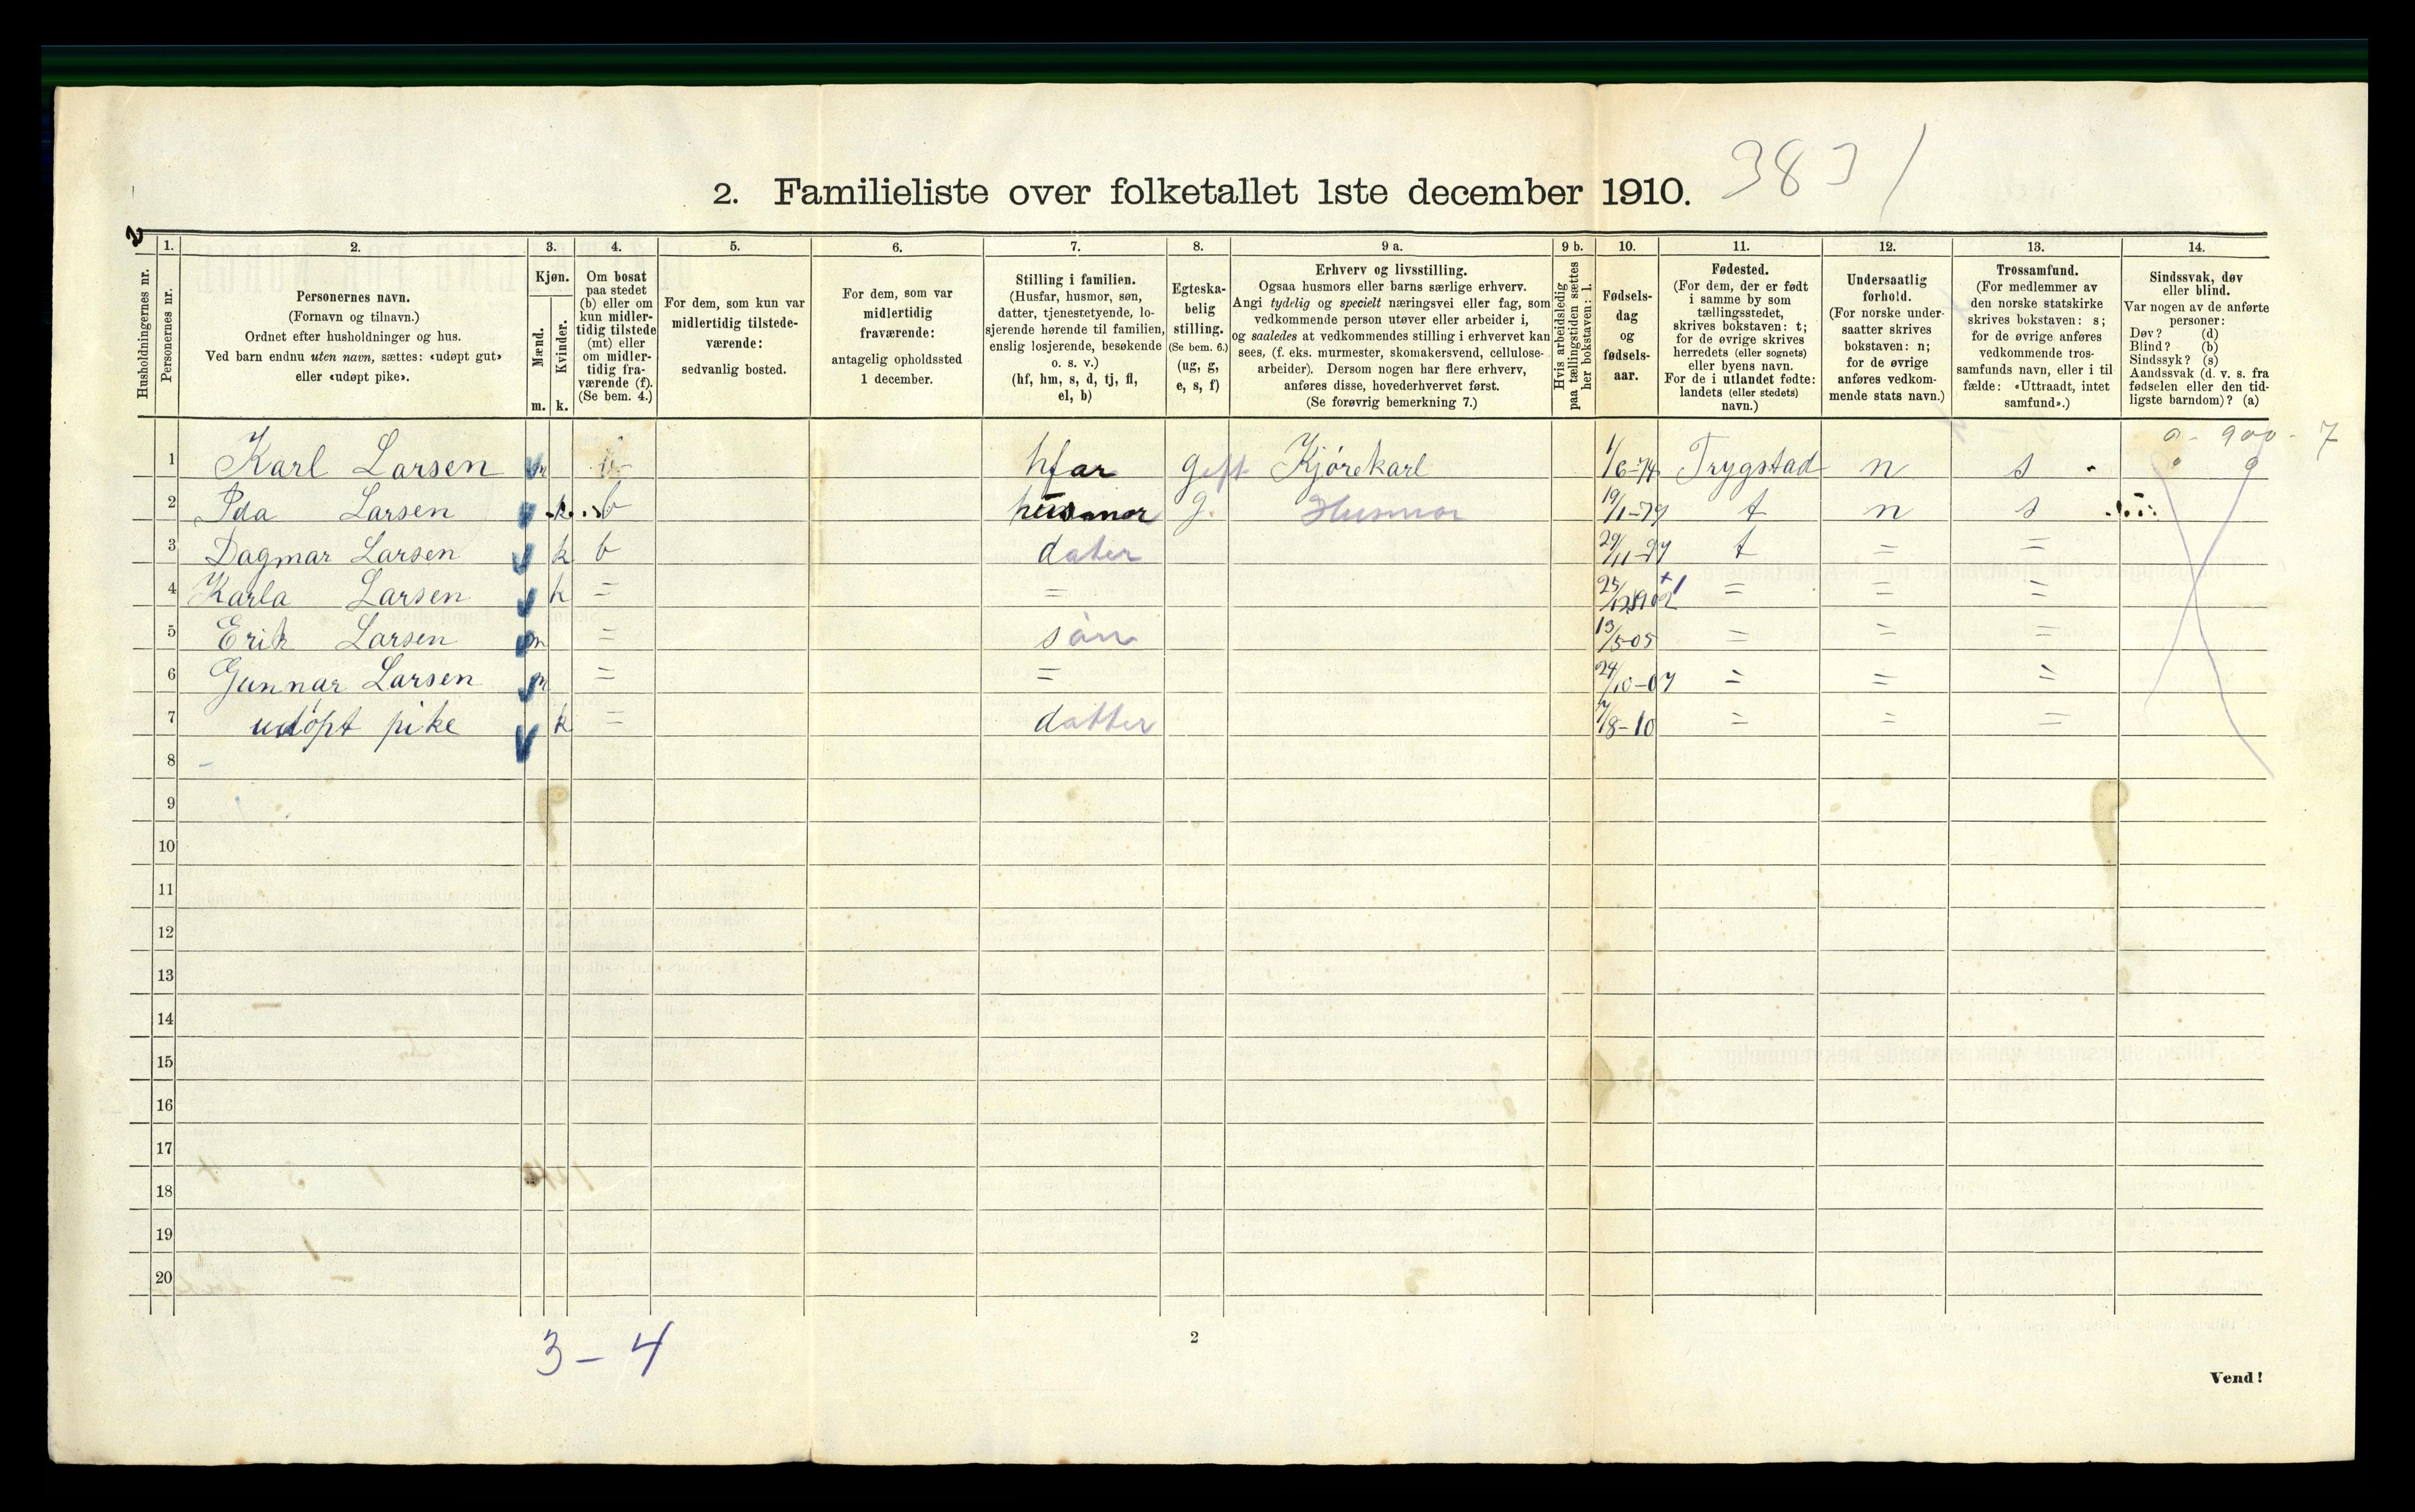 383 /
2. Familieliste over folketallet 1ste december 1910.
Husholdningernes nr.
1.
Personernes nr.
2.
Personernes navn.
(Fornavn og tilnavn.)
Ordnet efter husholdninger og hus.
Ved barn endnu uten navn, sættes: «udøpt gut»
eller «udøpt pike».
3.
Kjøn.
Mænd.
Kvinder.
m. k.
4.
Om bosat
paa stedet
(b) eller om
kun midler-
tidig tilstede
(mt) eller
om midler-
tidig fra-
værende (f).
(Se bem. 4.)
5.
For dem, som kun var
midlertidig tilstede-
værende:
sedvanlig bosted.
6.
For dem, som var
midlertidig
fraværende:
antagelig opholdssted
1 december.
7.
Stilling i familien.
(Husfar, husmor, søn,
datter, tjenestetyende, lo-
sjerende hørende til familien,
enslig losjerende, besøkende
o. s. v.)
(hf, hm, s, d, tj, fl,
el, b)
8.
Egteska-
belig
stilling.
(Se bem. 6.)
(ug, g,
e, s, f)
9 a.
Erhverv og livsstilling.
Ogsaa husmors eller barns særlige erhverv.
Angi tydelig og specielt næringsvei eller fag, som
vedkommende person utøver eller arbeider i,
og saaledes at vedkommendes stilling i erhvervet kan
sees, (f. eks. murmester, skomakersvend, cellulose-
arbeider). Dersom nogen har flere erhverv,
anføres disse, hovederhvervet først.
(Se forøvrig bemerkning 7.)
9 b.
Hvis arbeidsledig
paa tællingstiden sættes
her bokstaven: l.
10.
Fødsels-
dag
og
fødsels-
aar.
11.
Fødested.
(For dem, der er født
i samme by som
tællingsstedet,
skrives bokstaven: t;
for de øvrige skrives
herredets (eller sognets)
eller byens navn.
For de i utlandet fødte:
landets (eller stedets)
navn.)
12.
Undersaatlig
forhold.
(For norske under-
saatter skrives
bokstaven: n;
for de øvrige
anføres vedkom-
mende stats navn.)
13.
Trossamfund.
(For medlemmer av
den norske statskirke
skrives bokstaven: s;
for de øvrige anføres
vedkommende tros-
samfunds navn, eller i til-
fælde: «Uttraadt, intet
samfund».)
14.
Sindssvak, døv
eller blind.
Var nogen av de anførte
personer:
Døv? (d)
Blind? (b)
Sindssyk? (s)
Aandssvak (d. v. s. fra
fødselen eller den tid-
ligste barndom)? (a)
0 - 900 - 7
1 Karl Larsen m b hfar gift Kjørekarl 1/6-74 Trygstad n s
2 Ida Larsen k b husmor g. Husmor 19/1-79 t n s
3 Dagmar Larsen k b dater 29/11-97 t = =
4 Karla Larsen k = = = = =
5 Erik Larsen m = søn 13/5-05 = = =
6 Gunnar Larsen m = = 24/10-07 = = =
7 udøpt pike k = datter 7/8-10 = = =
8
9
10
11
12
13
14
15
16
17
18
19
20
3 - 4
2
Vend!